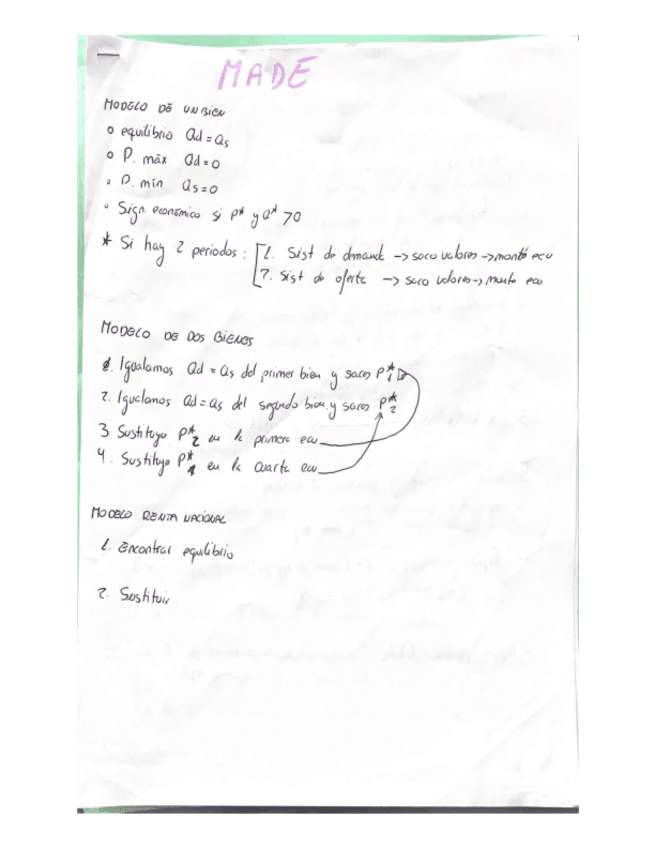 MADE
MODELO DE UN BIEN
o equilibrio Qd = Qs
o P. máx Qd = 0
· P. mín Qs = 0
· Sign económico si P* y Q* > 0
* Si hay 2 periodos : 1. Sist de demand -> saco valores -> monto ecu
2. Sist de oferta -> saco valores -> monto ecu
MODELO DE DOS BIENES
1. Igualamos Qd = Qs del primer bien y saco P*1
2. Igualamos Qd = Qs del segundo bien y saco P*2
3 Sustituyo P*2 en la primera ecu
4. Sustituyo P*1 en la cuarta ecu
MODELO RENTA NACIONAL
1. Encontrar equilibrio
2. Sustituir